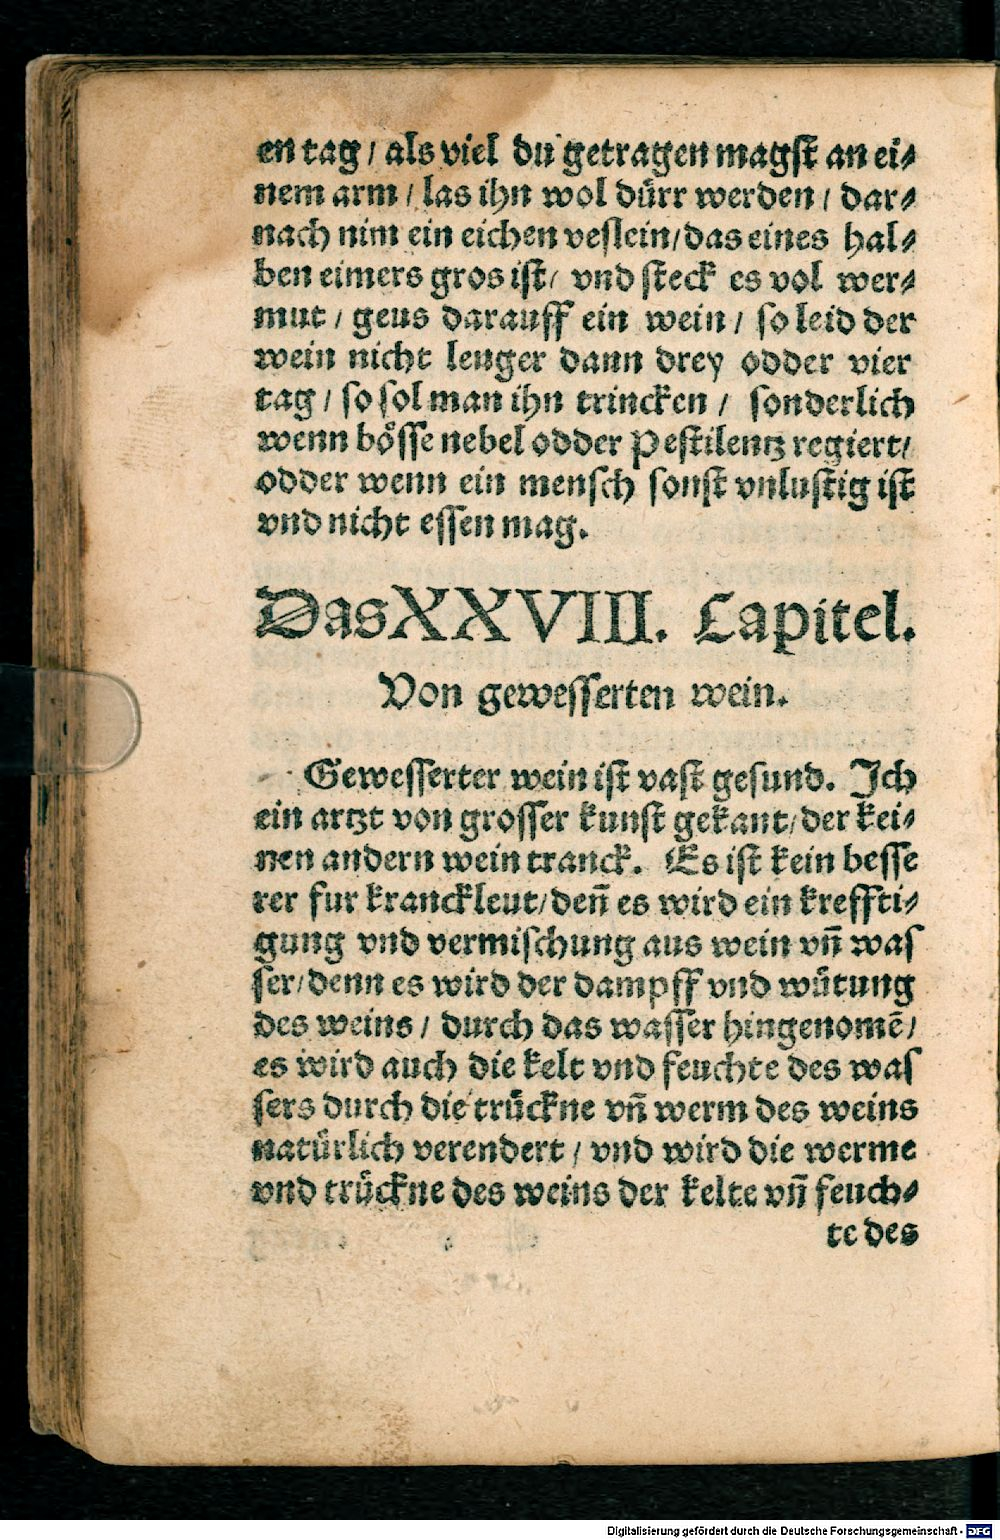 en tag / als viel du getragen magst an ei⸗
nem arm / las ihn wol dürr werden / dar⸗
nach nim ein eichen veslein / das eines hal⸗
ben eimers gros ist / vnd steck es vol wer⸗
mut / geus darauff ein wein / so leid der
wein nicht lenger dann drey odder vier
tag / so sol man ihn trincken / sonderlich
wenn bösse nebel odder Pestilentz regiert /
odder wenn ein mensch sonst vnlustig ist
vnd nicht essen mag.
Das XXVIII. Capitel.
Von gewesserten wein.
Gewesserter wein ist vast gesund. Ich
ein artzt von grosser kunst gekant / der kei⸗
nen andern wein tranck. Es ist kein besse
rer fur kranckleut / deñ es wird ein kreffti⸗
gung vnd vermischung aus wein vñ was
ser / denn es wird der dampff vnd wütung
des weins / durch das wasser hingenomē /
es wird auch die kelt vnd feuchte des was
sers durch die trückne vñ werm des weins
natürlich verendert / vnd wird die werme
vnd trückne des weins der kelte vñ feuch⸗
te des
Digitalisierung gefördert durch die Deutsche Forschungsgemeinschaft - DFG